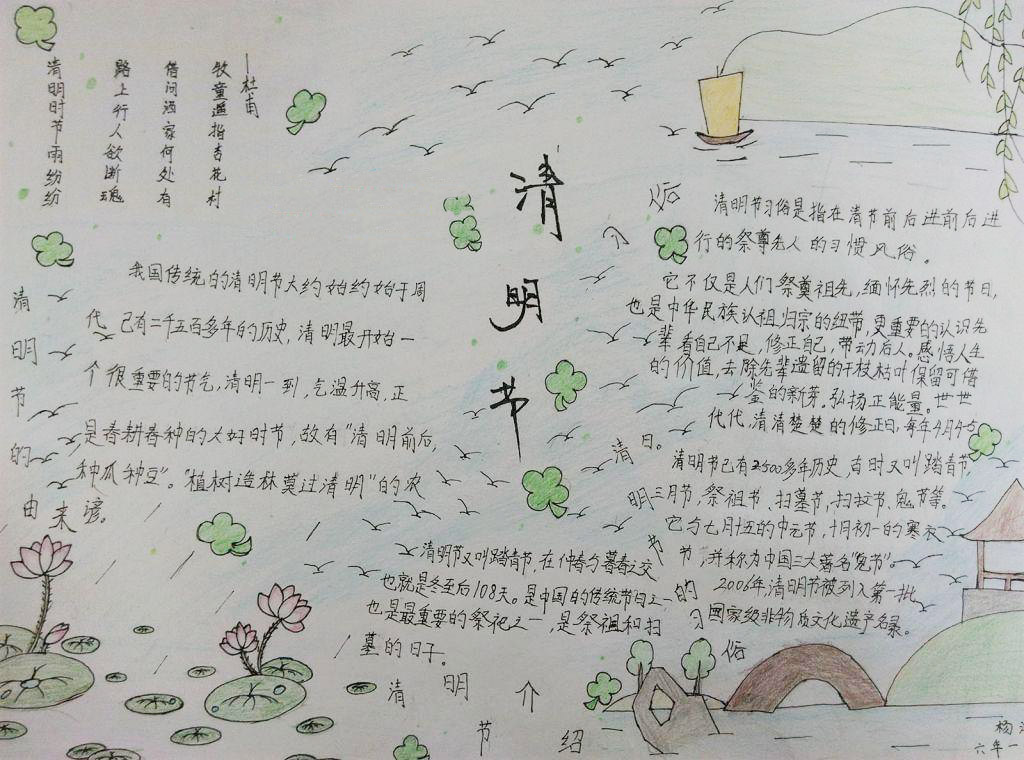 清明时节雨纷纷
路上行人欲断魂
借问酒家何处有
牧童遥指杏花村
—杜甫
清明节
清明节的由来
我国传统的清明节大约始约始于周
代，已有二千五百多年的历史，清明最开始一
个很重要的节气，清明一到，气温升高，正
是春耕春种的大好时节，故有"清明前后，
种瓜种豆"。"植树造林莫过清明"的农
谚。
清明节又叫踏青节，在仲春与暮春之交
也就是冬至后108天。是中国的传统节日之一
也是最重要的祭祀之一，是祭祖和扫
墓的日子。
清明节介绍
清明节习俗是指在清节前后进前后进
行的祭尊先人的习惯风俗。
它不仅是人们祭奠祖先，缅怀先烈的节日，
也是中华民族认祖归宗的纽带，更重要的认识先
辈看自己不是，修正自己，带动后人。感悟人生
的价值，去除先辈遗留的干枝枯叶保留可借
鉴的新芽。弘扬正能量。世世
代代，清清楚楚的修正曰，每年4月4-5
日。
清明节已有2500多年历史，古时又叫踏青节，
三月节，祭祖节、扫墓节、扫坟节、鬼节等。
它与七月十五的中元节，十月初一的寒衣
节，并称为中国三大著名"鬼节"。
2006年，清明节被列入第一批
国家级非物质文化遗产名录。
清明节的习俗
杨
六年一